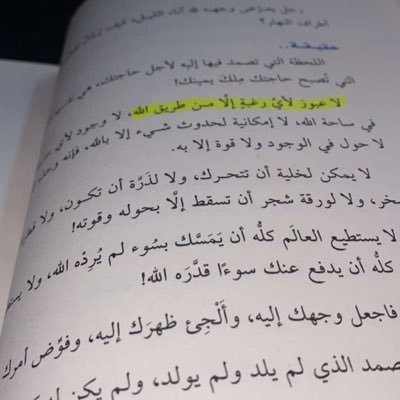 رجل يعرّض وجهه لله آناء الليل،
أطراف النهار؟
حقيقة..
اللحظة التي تصمد فيها إليه لأجل حاجتك، هي
التي تُصبح حاجتك مِلك يمينك!
لا عبور لأي رغبةٍ إلّا من طريق الله، لا وجود لأي
في ساحة الله، لا إمكانية لحدوث شيء إلا بالله، فإنه
لا حول في الوجود ولا قوة إلا به.
لا يمكن لخلية أن تتحرك، ولا لذَرّة أن تكون، ولا
ولا لورقة شجر أن تسقط إلّا بحوله وقوته!
لا يستطيع العالَم كلُّه أن يَمَسَّك بسُوء لم يُرِدْه الله، ولا
كلُّه أن يدفع عنك سوءًا قدَّره الله!
فاجعل وجهك إليه، وأَلْجِئ ظهرَك إليه، وفوِّض أمرك
الذي لم يلد ولم يولد، ولم يكن